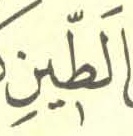 اَلطِّينِ